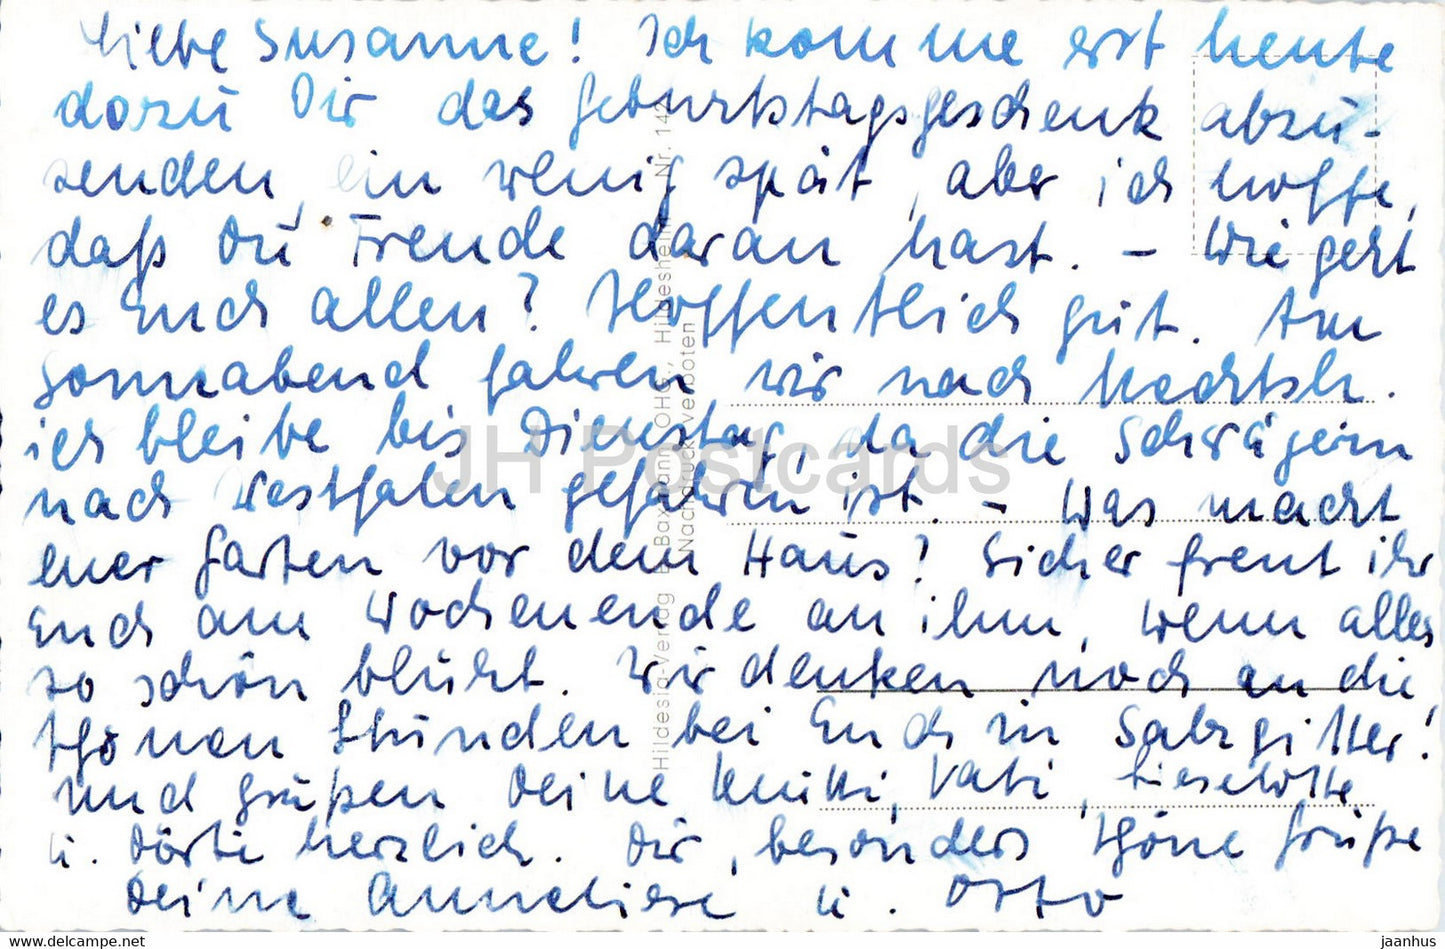 Liebe Susanne! Ich komme erst heute
dazu Dir das Geburtstagsgeschenk abzu-
senden, ein wenig spät, aber ich hoffe,
daß Du Freude daran hast. – Wie geht
es Euch allen? Hoffentlich gut. Am
Sonnabend fahren wir nach
ich bleibe bis Dienstag, da die Schwägerin
nach Westfalen gefahren ist. – Was macht
euer Garten vor dem Haus? Sicher freut ihr
Euch am Wochenende an ihm, wenn alles
so schön blüht. Wir denken noch an die
schönen Stunden bei Euch in Salzgitter!
und grüßen Deine Mutti, Vati, Lieselotte
u. Dörte herzlich. Dir, besonders schöne Grüße
Deine Anneliese u. Otto
Hildesia-Verlag B. Baxmann OHG., Hildesheim Nr. 142
Nachdruck verboten
JH Postcards
delcampe.net
jaanhus